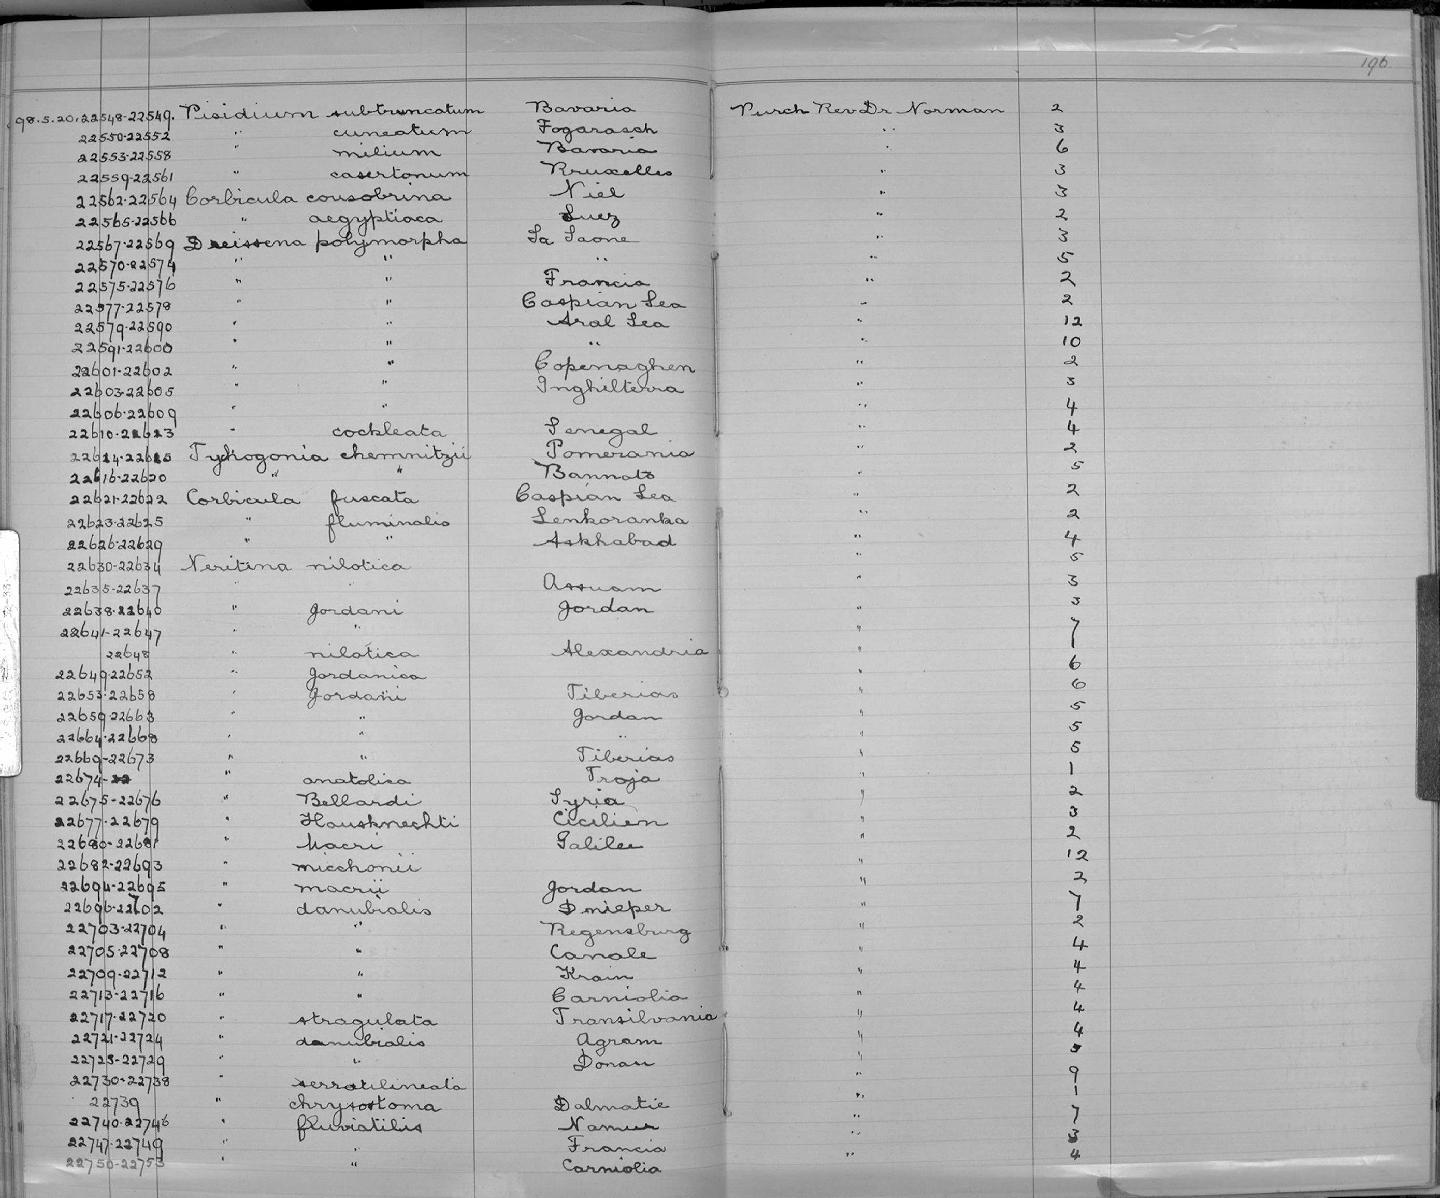 196
98.5.20.22548-22549. Pisidium subtruncatum Bavaria Purch Rev Dr Norman 2
22550-22552 " cuneatum Fogarasch " 3
22553-22558 " milium Bavaria " 6
22559-22561 " casertonum Bruxelles " 3
22562-22564 Corbicula cousobrina Niel " 3
22565-22566 " aegyptiaca Suez " 2
22567-22569 Dreissena polymorpha La Saone " 3
22570-22574 " " " " 5
22575-22576 " " Francia " 2
22577-22578 " Caspian Sea " 2
22579-22590 " " Aral Sea " 12
22591-22600 " " " " 10
22601-22602 " " Copenaghen " 2
22603-22605 " " Inghilterra " 3
22606-22609 " " " 4
22610-22613 " cockleata Senegal " 4
22614-22615 Tykogonia chemnitzii Pomerania " 2
22616-22620 " " Bannato " 5
22621-22622 Corbicula fuscata Caspian Sea " 2
22623-22625 " fluminalis Lenkoranka " 2
22626-22629 " " Askhabad " 4
22630-22634 Neritina nilotica " 5
22635-22637 " " Assuam " 3
22638-22640 " Jordani Jordan " 3
22641-22647 " " " 7
22648 " nilotica Alexandria " 1
22649-22652 " Jordanica " 6
22653-22658 " Jordani Tiberias " 6
22659-22663 " " Jordan " 5
22664-22668 " " " " 5
22669-22673 " " Tiberias " 5
22674- " anatolica Troja " 1
22675-22676 " Bellardi Syria " 2
22677-22679 " Hausknechti Cicilien " 3
22680-22681 " Macri Galilee " 2
22682-22693 " micchonii " 12
22694-22695 " macrii Jordan " 2
22696-22702 " danubialis Dnieper " 7
22703-22704 " " Regensburg " 2
22705-22708 " " Canale " 4
22709-22712 " " Krain " 4
22713-22716 " " Carniolia " 4
22717-22720 " stragulata Transilvania " 4
22721-22724 " danubialis Agram " 4
22725-22729 " " Donau " 5
22730-22738 " serratilineata " 9
22739 " chrysostoma Dalmatie " 1
22740-22746 " fluviatilis Namur " 7
22747-22749 " " Francia " 3
22750-22753 " " Carniolia " 4